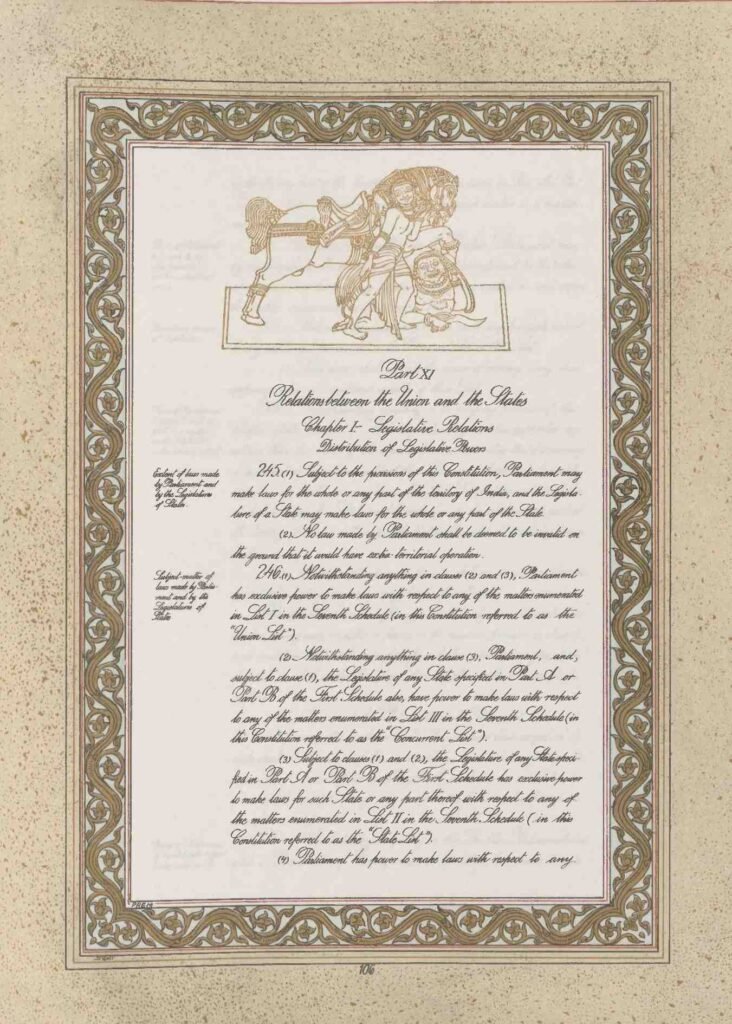 Part XI
Relations between the Union and the States
Chapter I- Legislative Relations
Distribution of Legislative Powers
Extent of laws made
by Parliament and
by the Legislatures
of States.
245.(1) Subject to the provisions of this Constitution, Parliament may
make laws for the whole or any part of the territory of India, and the Legisla-
ture of a State may make laws for the whole or any part of the State.
(2) No law made by Parliament shall be deemed to be invalid on
the ground that it would have extra-territorial operation.
Subject-matter of
laws made by Parlia-
ment and by the
Legislatures of
States
246.(1) Notwithstanding anything in clauses (2) and (3), Parliament
has exclusive power to make laws with respect to any of the matters enumerated
in List I in the Seventh Schedule (in this Constitution referred to as the
"Union List").
(2) Notwithstanding anything in clause (3), Parliament, and,
subject to clause (1), the Legislature of any State specified in Part A or
Part B of the First Schedule also, have power to make laws with respect
to any of the matters enumerated in List III in the Seventh Schedule (in
this Constitution referred to as the "Concurrent List").
(3) Subject to clauses (1) and (2), the Legislature of any State speci-
fied in Part A or Part B of the First Schedule has exclusive power
to make laws for such State or any part thereof with respect to any of
the matters enumerated in List II in the Seventh Schedule (in this
Constitution referred to as the "State List").
(4) Parliament has power to make laws with respect to any
PREM
106